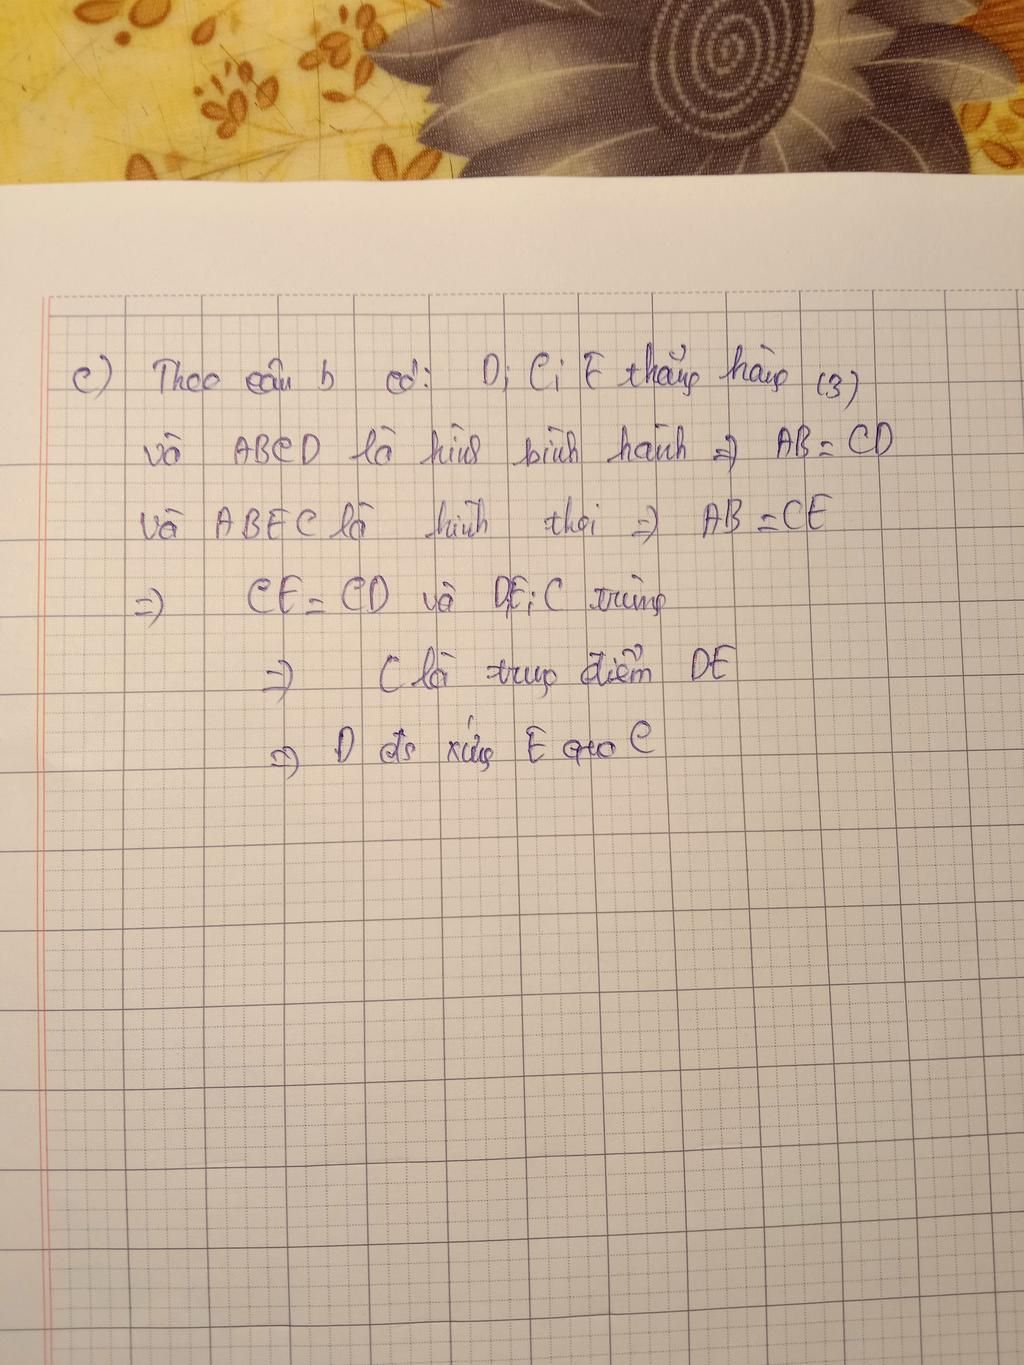 c) Theo câu b có: D; C; E thẳng hàng (3)
và ABCD là hình bình hành => AB = CD
và ABEC là hình thoi => AB = CE
=> CE = CD và DE; C trùng
=> C là trung điểm DE
=> D đx xứng E qua C